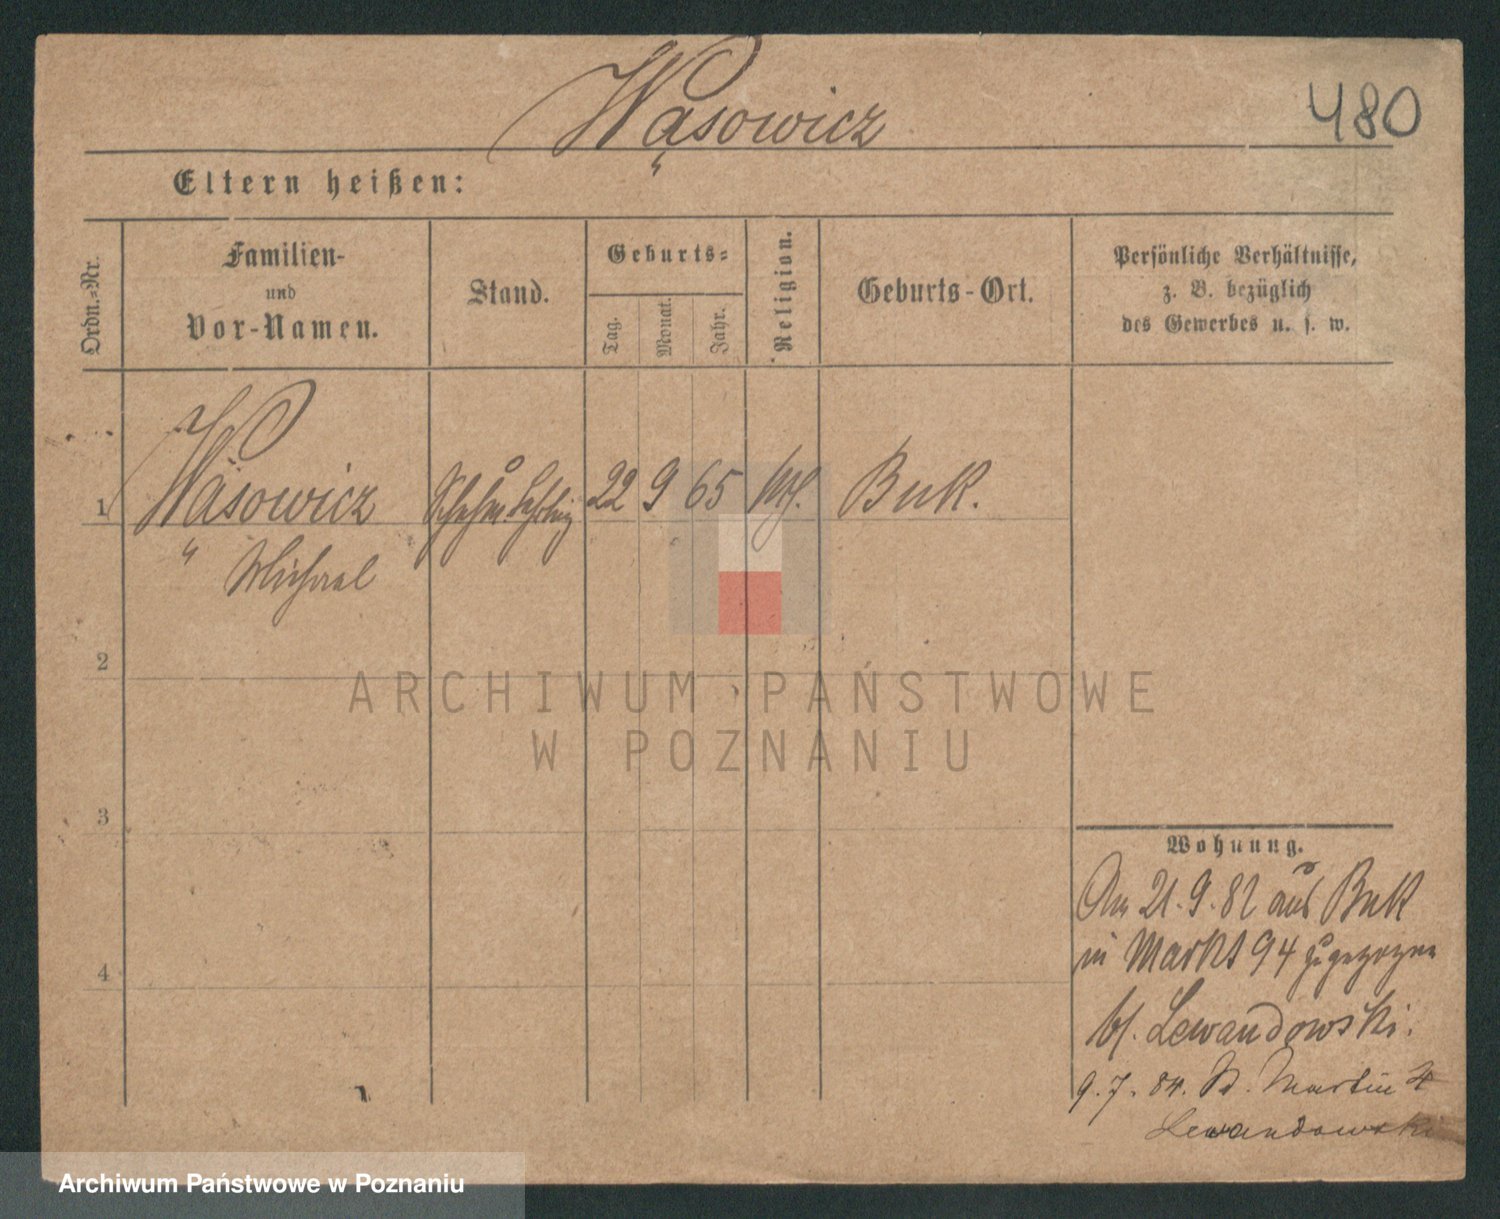 Wąsowicz
480
Eltern heißen:
Ordn.-Nr.
Familien-
und
Vor-Namen.
Stand.
Geburts-
Tag.
Monat.
Jahr.
Religion.
Geburts-Ort.
Persönliche Verhältnisse,
z. B. bezüglich
des Gewerbes u. s. w.
1
Wąsowicz
Michael
Lehrling
22
9
65
kth.
Buk.
2
3
4
Wohnung.
Am 21.9.82 aus Buk
in Markt 94 zugezogen
bf. Lewandowski.
9.7.84. St. Martin 4
Lewandowski
ARCHIWUM PAŃSTWOWE
W POZNANIU
Archiwum Państwowe w Poznaniu